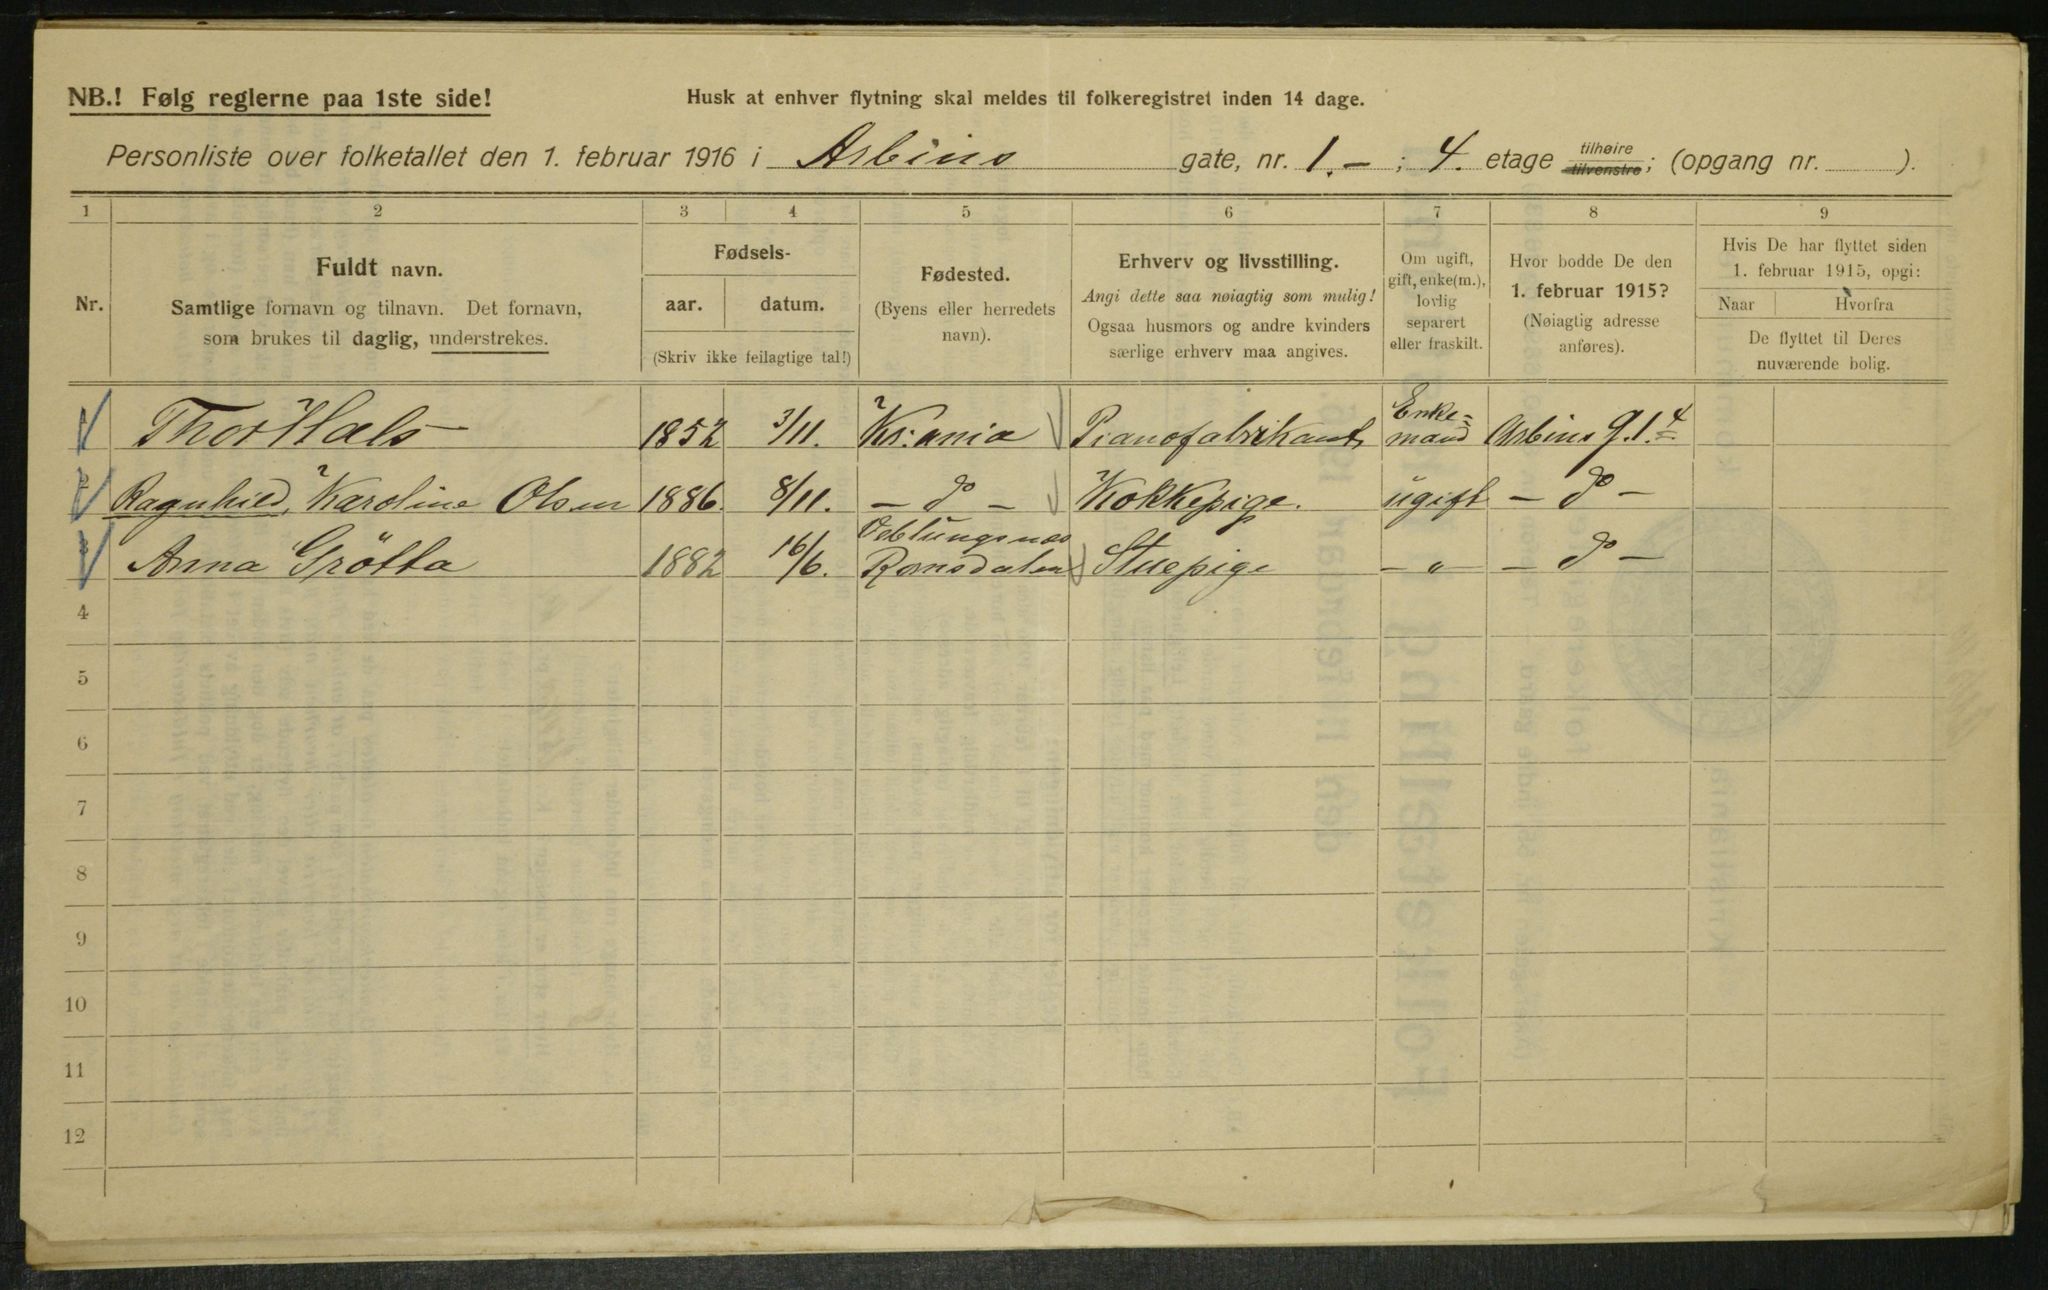 NB.! Følg reglerne paa 1ste side!
Husk at enhver flytning skal meldes til folkeregistret inden 14 dage.
Personliste over folketallet den 1. februar 1916 i Arbins gate, nr. 1.- ; 4. etage tilhøire tilvenstre; (opgang nr. ).
1 2 3 4 5 6 7 8 9
Nr.
Fuldt navn.
Samtlige fornavn og tilnavn. Det fornavn,
som brukes til daglig, understrekes.
Fødsels-
aar. datum.
(Skriv ikke feilagtige tal!)
Fødested.
(Byens eller herredets
navn).
Erhverv og livsstilling.
Angi dette saa nøiagtig som mulig!
Ogsaa husmors og andre kvinders
særlige erhverv maa angives.
Om ugift,
gift, enke(m.),
lovlig
separert
eller fraskilt.
Hvor bodde De den
1. februar 1915?
(Nøiagtig adresse
anføres).
Hvis De har flyttet siden
1. februar 1915, opgi:
Naar Hvorfra
De flyttet til Deres
nuværende bolig.
1 Thor Hals 1852 3/11. Kr:ania Pianofabrikant Enke=mand Arbins g. 1. 4
2 Ragnhild, Karoline Olsen 1886. 8/11. - do - Kokkepige. ugift - do -
3 Anna Grötta 1882 16/6. Veblungsnes Romsdalen Stuepige - " - - do -
4
5
6
7
8
9
10
11
12